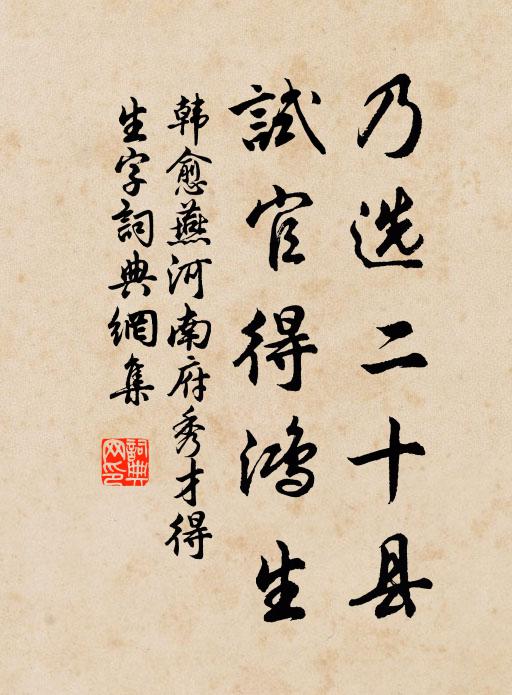 乃选二十县
試官得鴻生
韩愈燕河南府秀才得
生字詞典網集
詞典
网印